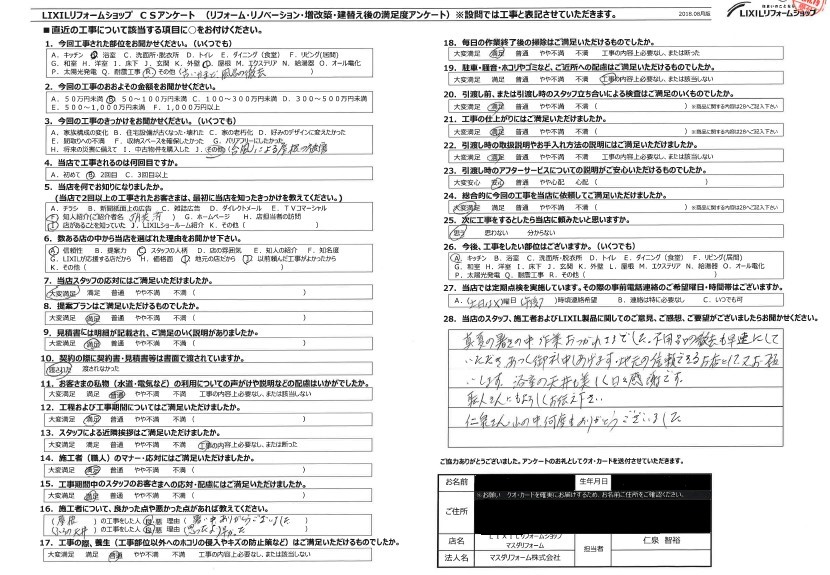 LIXILリフォームショップ CSアンケート (リフォーム・リノベーション・増改築・建替え後の満足度アンケート) ※設問では工事と表記させていただきます。
2018.08月版
LIXILリフォームショップ
■ 直近の工事について該当する項目に○をお付けください。
1. 今回工事された部位をお聞かせください。(いくつでも)
A. キッチン B. 浴室 C. 洗面所・脱衣所 D. トイレ E. ダイニング(食堂) F. リビング(居間)
G. 和室 H. 洋室 I. 床下 J. 玄関 K. 外壁 L. 屋根 M. エクステリア N. 給湯器 O. オール電化
P. 太陽光発電 Q. 耐震工事 R. その他(
2. 今回の工事のおおよその金額をお聞かせください。
A. 50万円未満 B. 50~100万円未満 C. 100~300万円未満 D. 300~500万円未満
E. 500~1,000万円未満 F. 1,000万円以上
3. 今回の工事のきっかけをお聞かせください。(いくつでも)
A. 家族構成の変化 B. 住宅設備が古くなった・壊れた C. 家の老朽化 D. 好みのデザインに変えたかった
E. 間取りへの不満 F. 収納スペースを確保したかった G. バリアフリーにしたかった
H. 将来の災害に備えて I. 中古物件を購入した J. その他(台風による屋根の破損
4. 当店で工事されるのは何回目ですか。
A. 初めて B. 2回目 C. 3回目以上
5. 当店を何でお知りになりましたか。
(当店で2回以上の工事されたお客さまは、最初に当店を知ったきっかけを教えてください。)
A. チラシ B. 新聞紙面上の広告 C. 雑誌広告 D. ダイレクトメール E. TVコマーシャル
F. 知人紹介(ご紹介者名 ) G. ホームページ H. 店担当者の訪問
I. 店があるのを知っていた J. LIXILショールーム紹介 K. その他( )
6. 数ある店の中から当店を選ばれた理由をお聞かせ下さい。
A. 信頼性 B. 提案力 C. スタッフの人柄 D. 店の雰囲気 E. 知人の紹介 F. 知名度
G. LIXILが応援する店だから H. 価格面 I. 地元の店だから J. 以前頼んだ工事がよかったから
K. その他( )
7. 当店スタッフの応対にはご満足いただけましたか。
大変満足 満足 普通 やや不満 不満 ( )
8. 提案プランはご満足いただけるものでしたか。
大変満足 満足 普通 やや不満 不満 ( )
9. 見積書には明細が記載され、ご満足のいく説明がありましたか。
大変満足 満足 普通 やや不満 不満 ( )
10. 契約の際に契約書・見積書等は書面で渡されていますか。
渡された 渡されなかった
11. お客さまの私物(水道・電気など)の利用についての声がけや説明などの配慮はいかがでしたか。
大変満足 満足 普通 やや不満 不満 工事の内容上必要なし、または該当しない
12. 工程および工事期間についてはご満足いただけましたか。
大変満足 満足 普通 やや不満 不満 ( )
13. スタッフによる近隣挨拶はご満足いただけましたか。
大変満足 満足 普通 やや不満 不満 工事の内容上必要なし、または断った
14. 施工者(職人)のマナー・応対にはご満足いただけましたか。
大変満足 満足 普通 やや不満 不満 ( )
15. 工事期間中のスタッフのお客さまへの応対・配慮にはご満足いただけましたか。
大変満足 満足 普通 やや不満 不満 ( )
16. 施工者について、良かった点や悪かった点があれば教えてください。
(屋根 )の工事をした人(良・悪 理由(暑い中ありがとうございました )
( )の工事をした人(良・悪 理由( )
17. 工事の際、養生(工事部位以外へのホコリの侵入やキズの防止策など)はご満足いただけるものでしたか。
大変満足 満足 普通 やや不満 不満 工事の内容上必要なし、または該当しない
18. 毎日の作業終了後の掃除はご満足いただけるものでしたか。
大変満足 満足 普通 やや不満 不満 工事の内容上必要なし、または断った
19. 駐車・騒音・ホコリやゴミなど、ご近所への配慮はご満足いただけるものでしたか。
大変満足 満足 普通 やや不満 不満 工事の内容上必要なし、または該当しない
20. 引渡し前、または引渡し時のスタッフ立ち合いによる検査はご満足のいくものでしたか。
大変満足 満足 普通 やや不満 不満 ( ) ※商品に関する内容は28へご記入下さい
21. 工事の仕上がりにはご満足いただけましたか。
大変満足 満足 普通 やや不満 不満 ( ) ※商品に関する内容は28へご記入下さい
22. 引渡し時の取扱説明やお手入れ方法の説明にはご満足いただけましたか。
大変満足 満足 普通 やや不満 不満 工事の内容上必要なし、または該当しない
23. 引渡し時のアフターサービスについての説明がご安心いただけるものでしたか。
大変安心 安心 普通 やや心配 心配 ( )
24. 総合的に今回の工事を当店に依頼してご満足いただけましたか。
大変満足 満足 普通 やや不満 不満 ( ) ※商品に関する内容は28へご記入下さい
25. 次に工事をするとしたら当店に頼みたいと思いますか。
思う 思わない 分からない
26. 今後、工事をしたい部位はございますか。(いくつでも)
A. キッチン B. 浴室 C. 洗面所・脱衣所 D. トイレ E. ダイニング(食堂) F. リビング(居間)
G. 和室 H. 洋室 I. 床下 J. 玄関 K. 外壁 L. 屋根 M. エクステリア N. 給湯器 O. オール電化
P. 太陽光発電 Q. 耐震工事 R. その他( )
27. 当店では定期点検を実施しています。その際の事前電話連絡のご希望曜日・時間帯はございますか。
A. (土日以外)曜日 (午後)時頃連絡希望 B. 連絡は特に必要なし C. いつでも可
28. 当店のスタッフ、施工者およびLIXIL製品に関してのご意見、ご感想、ご要望がございましたらお聞かせください。
真夏の暑さの中 作業おつかれさまでした。不用品の撤去も早速にして
いただき あつく御礼申しあげます。地元の信頼できるお店としてお願
いします。浴室の天井も美しく日々感謝です。
職人さんにもよろしくお伝え下さい。
仁泉さん 山の中何度もありがとうございました
ご協力ありがとうございました。アンケートのお礼としてクオ・カードを送付させていただきます。
お名前
生年月日
※お願い クオ・カードを確実にお届けするため、お名前ご住所をご確認ください。
ご住所
店名 LIXILリフォームショップ マスダリフォーム
担当者 仁泉 智裕
法人名 マスダリフォーム株式会社